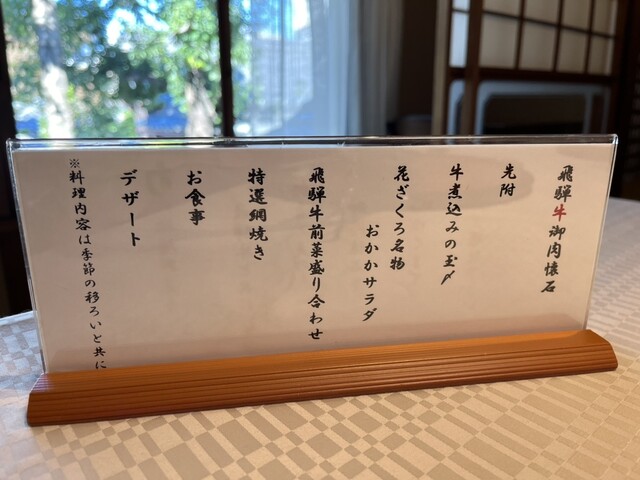 飛騨牛御肉懐石
先附
牛煮込みの玉〆
花ざくろ名物
おかかサラダ
飛騨牛前菜盛り合わせ
特選網焼き
お食事
デザート
※料理内容は季節の移ろいと共に